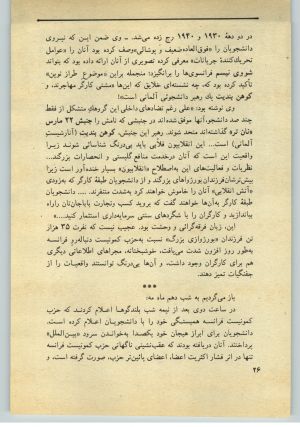 در دو دههٔ ۱۹۳۰ و ۱۹۴۰ رخ زده می‌شد. ــ وی ضمن این که نیروی
دانشجویان را «فوق‌العاده‌ضعیف و پوشالی»وصف کرده بود آنان را «عوامل
تحریک‌کنندهٔ جریانات» معرفی کرده تصویری از آنان ارائه داده بود که بتواند
شووی نیسم فرانسوی‌ها را برانگیزد: منجمله براین «موضوع طراز نوین»
تأکید کرده بود، که چه نشسته‌ای خلایق که این‌ها مشتی کارگر مهاجرند، و
کوهن بندیت یک رهبر دانشجوئی آلمانی است!
وی نوشته بود: «علی رغم تضادهای داخلی این گروههای متشکل از فقط
چند صد دانشجو، آنها موفق‌شده‌اند در جنبشی که نامش را جنبش ۲۲ مارس
«نان تر» گذاشته‌اند متحد شوند. رهبر این جنبش، کوهن بندیت (آنارشیست
آلمانی) است... این انقلابیون قلابی باید بی‌درنگ شناسائی شوند زیرا
واقعیت این است که آنان درخدمت منافع گلیستی و انحصارات بزرگند...
نظریات و فعالیت‌های این به‌اصطلاح «انقلابیون» بسیار خنده‌آور است زیرا
بیش‌ترشان‌فرزندان بورژوآهای بزرگند، و از دانشجویان طبقهٔ کارگر که به‌زودی
«آتش انقلابی» آنان را خاموش خواهند کرد به‌شدت متنفرند. ... دانشجویان
طبقهٔ کارگر به‌آن‌ها خواهند گفت که بروید کسب وتجارت باباجان‌تان راراه
بیاندازید و کارگران را با شگردهای سنتی سرمایه‌داری استثمار کنید....»
این، زبان فرقه‌گرائی و وحشت بود. عجیب نیست که نفرت ۳۵ هزار
تن فرزندان «بورژوازی بزرگ» نسبت به‌حزب کمونیست دنباله‌رو فرانسه
به‌طور روز افزون شدت می‌یافت، خوشبختانه، مجراهای اطلاعاتی دیگری
هم برای کارگران وجود داشت، و آن‌ها بی‌درنگ توانستند واقعیات را از
جفنگیات تمیز دهند.
***
باز می‌گردیم به شب دهم ماه مه:
در ساعت دوی بعد از نیمه شب بلندگوها اعلام کردند که حزب
کمونیست فرانسه همبستگی خود را با دانشجویان اعلام کرده است.
دانشجویان برای ابراز هیجان خود یکصدا به‌خواندن سرود «بین‌الملل»
پرداختند. آنان دریافته بودند که عقب‌نشینی ناگهانی حزب کمونیست فرانسه
تنها در اثر فشار اکثریت اعضا، اعضای پائین‌تر حزب، صورت گرفته است، و
۲۶